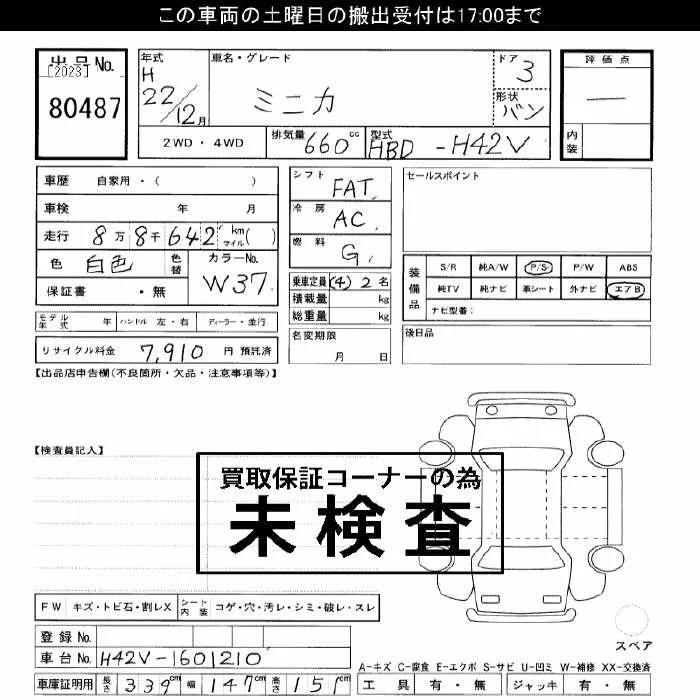 この車両の土曜日の搬出受付は17:00まで
出品No.
[2023]
80487
年式
H
22/12月
車名・グレード
ミニカ
ドア
3
形状
バン
2WD・4WD
排気量
660cc
型式
HBD-H42V
評価点
―
内装
車歴 自家用・( )
車検 年 月
走行 8万8千642km マイル( )
色 白色 色替
カラーNo.
W37
保証書 ・無
モデル年式 年 ハンドル 左・右 ディーラー・並行
リサイクル料金 7,910 円 預託済
シフト
FAT.
冷房
AC.
燃料
G.
乗車定員 (4) 2 名
積載量 kg
総重量 kg
名変期限
月 日
セールスポイント
装備品
S/R 純A/W P/S P/W ABS
純TV 純ナビ 革シート 外ナビ エアB
ナビ型番:
後日品
【出品店申告欄(不良箇所・欠品・注意事項等)】
【検査員記入】
買取保証コーナーの為
未検査
FW キズ・トビ石・割レX シート内装 コゲ・穴・汚レ・シミ・破レ・スレ
登録No.
車台No. H42V-1601210
車庫証明用 長さ 339cm 幅 147cm 高さ 151cm
スペア
A-キズ C-腐食 E-エクボ S-サビ U-凹ミ W-補修 XX-交換済
工具 有・無 ジャッキ 有・無